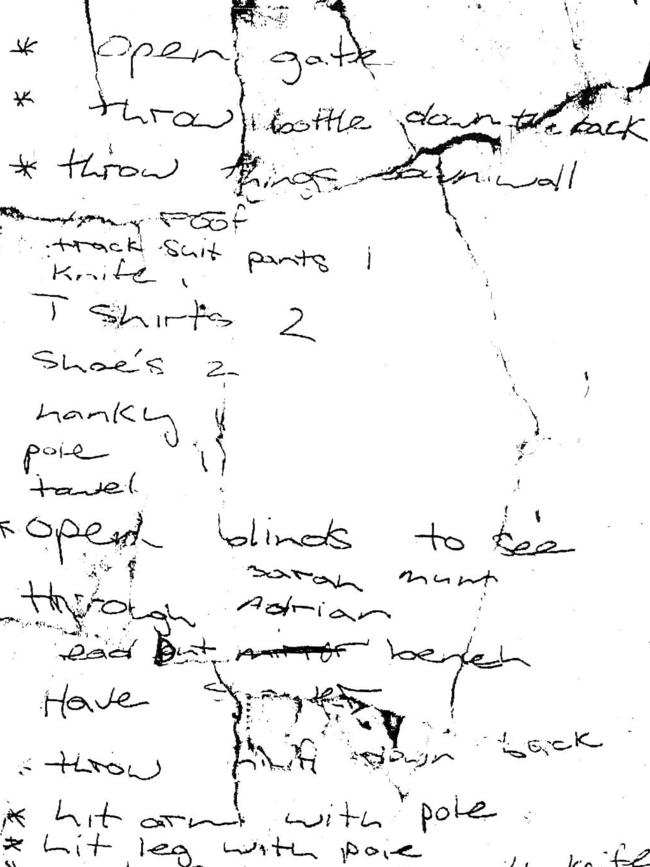 * Open gate
* throw bottle down the back
* throw things down wall
roof
track suit pants 1
Knife 1
T Shirts 2
Shoe's 2
hanky 1
pole 1
towel
* open blinds to see
Sarah mum
through Adrian
lead but mirror bench
Have
throw down back
* hit arm with pole
* hit leg with pole
knife